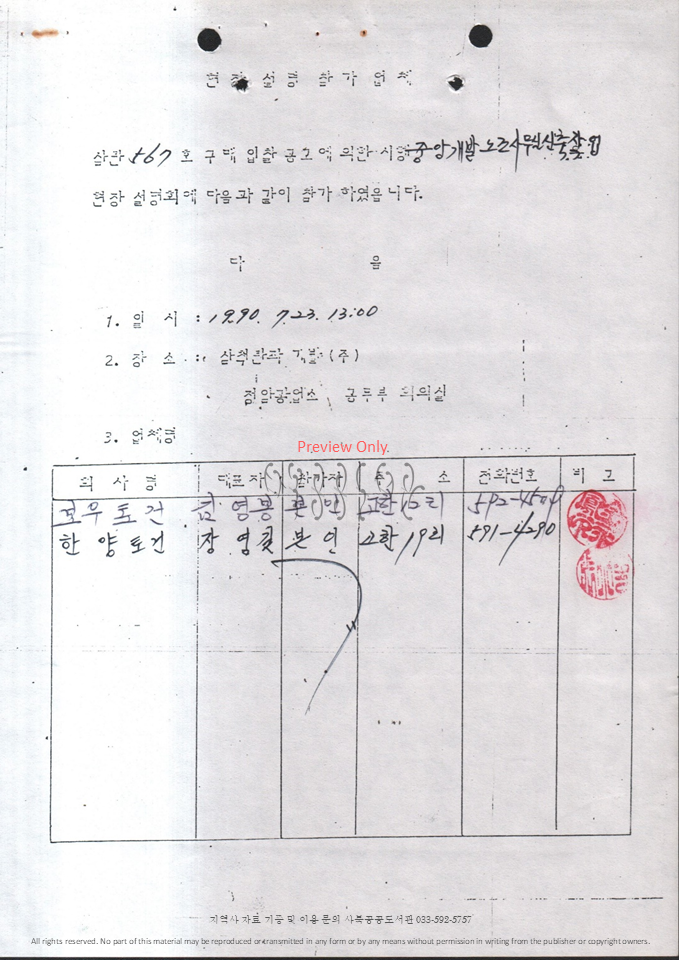 현장 설명 참가 업체
삼관 567 호 구매 입찰 공고에 의한 시행 중앙개발 노조사무실신축작업
현장 설명회에 다음과 같이 참가 하였읍니다.
다 음
1. 일 시 : 1990. 7.23. 13:00
2. 장 소 : 삼척탄좌 개발(주)
정암광업소 공무부 회의실
3. 업체명
Preview Only.
회 사 명 대표자 참가자 주 소 전화번호 비 고
토건 영 본 인 고한 리
한 양 토건 장 영 본 인 고한 19리 591-4290
지역사 자료 기증 및 이용 문의 사북공공도서관 033-592-5757
All rights reserved. No part of this material may be reproduced or transmitted in any form or by any means without permission in writing from the publisher or copyright owners.